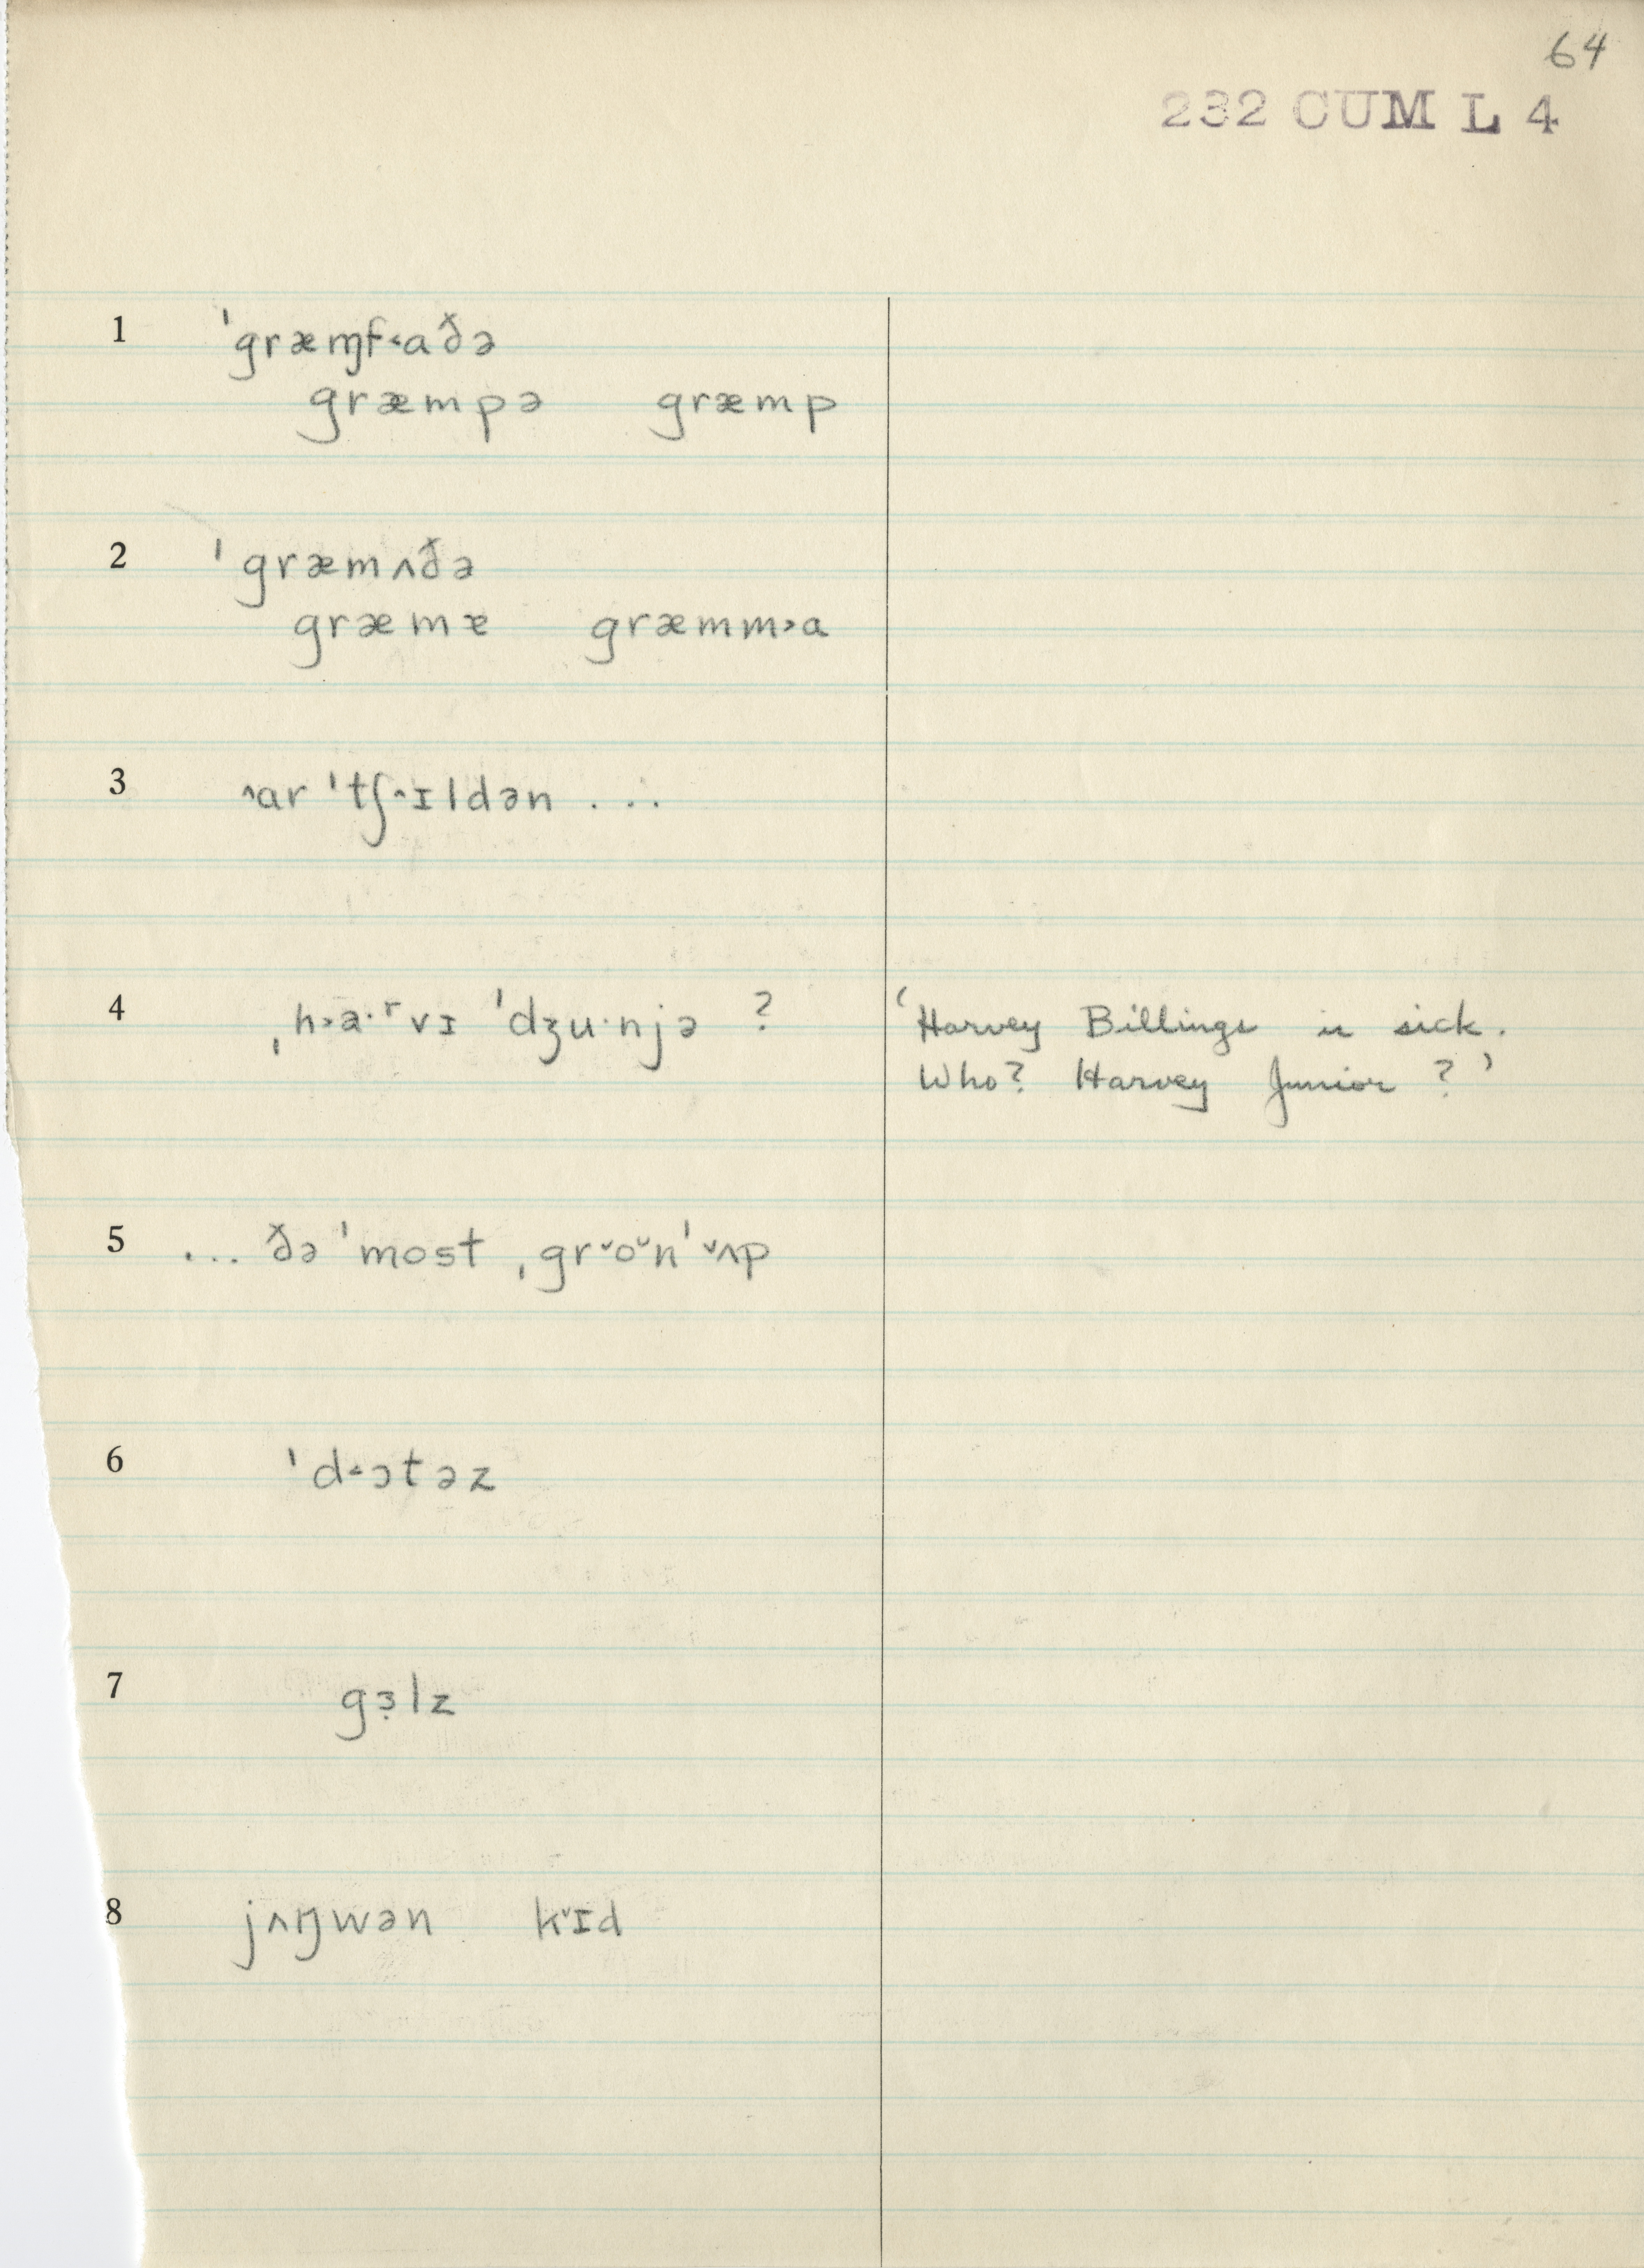 64
232 CUM L 4
1 ˈgræɱf˂aðə
græmpə græmp
2 ˈgræmʌðə
græmæ græmm˃a
3 ˄ar ˈtʃ˄ɪldən ...
4 ˌh˃a·ʳvɪ ˈdʒu·njə ? ‘Harvey Billings is sick.
Who? Harvey Junior ?’
5 ... ðə ˈmost ˌgr˅o˅nˈ˅ʌp
6 ˈd˂ɔtəz
7 gɜ̣lz
8 jʌŋwən k˅ɪd